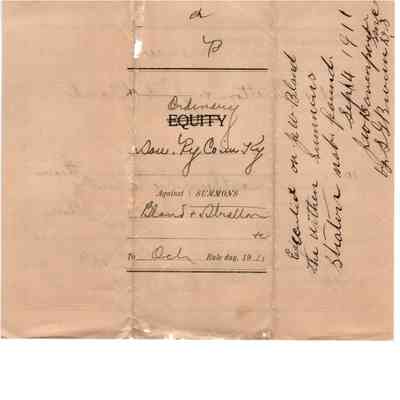 Ordinary
EQUITY
Sou. Ry Co in Ky
Against } SUMMONS
Bland & Stratton
&c
To Oct Rule day, 191
Executed on J W Bland
the within summons
Stratton not found.
Sept 14 1911
J W Davenport
by S G